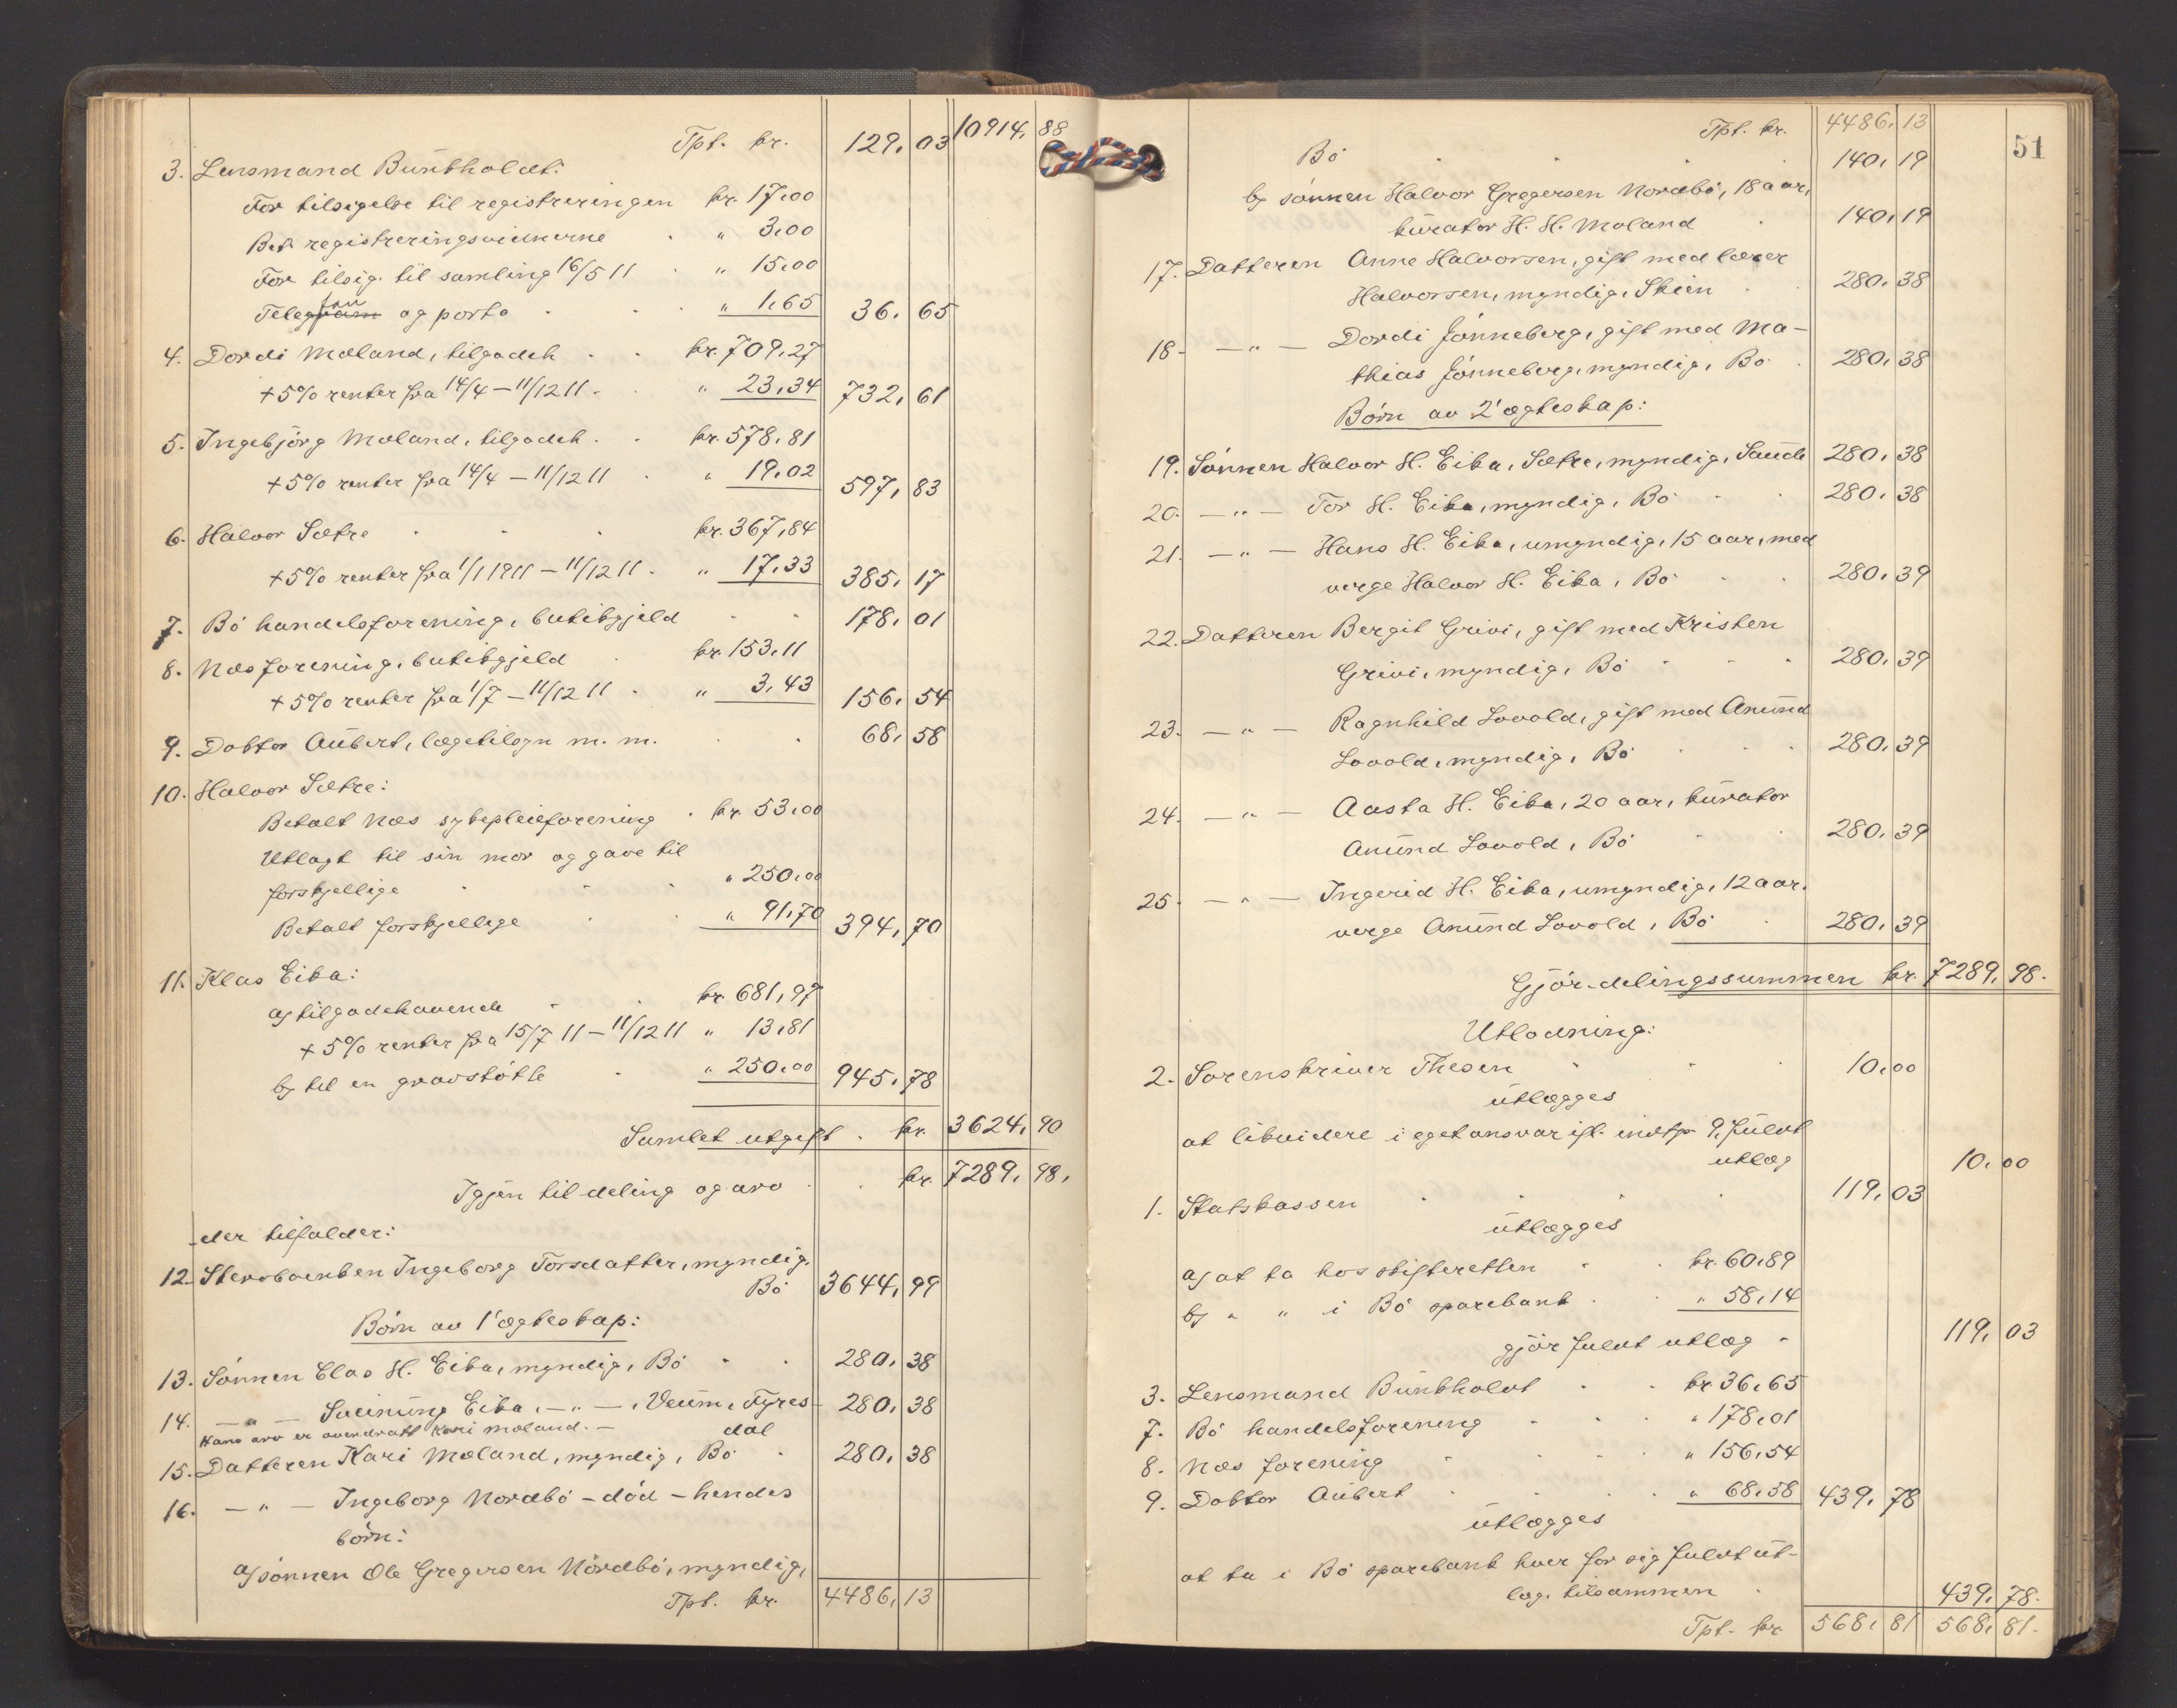 Tpt. kr. 129,03 10914,88
3. Lensmand Bunkholdt:
For tilsigelse til registreringen kr. 17,00
Bet. registreringsvidnerne . " 3,00
For tilsig. til samling 16/5 11 . " 15,00
Telegram fon og porto . . . " 1,65 36,65
4. Dordi Moland, tilgodeh . . kr. 709,27
+ 5% renter fra 14/4 – 11/12 11 . . " 23,34 732,61
5. Ingebjörg Moland, tilgodeh . . kr. 578,81
+ 5% renter fra 14/4 – 11/12 11 . " 19,02 597,83
6. Halvor Sætre . . . kr. 367,84
+ 5% renter fra 1/1 1911 – 11/12 11 . " 17,33 385,17
7. Bö handelsforening, butikgjeld . . 178,01
8. Næs forening, butikgjeld . kr. 153,11
+ 5% renter fra 1/7 – 11/12 11 . " 3,43 156,54
9. Doktor Aubert, lægetilsyn m. m. . . 68,58
10. Halvor Sætre:
Betalt Næs sykepleieforening . kr. 53,00
Utlagt til sin mor og gave til
forskjellige . . . " 250,00
Betalt forskjellige . . " 91,70 394,70
11. Klas Eika:
a) tilgodehavende . . kr. 681,97
+ 5% renter fra 15/7 11 – 11/12 11 " 13,81
b) til en gravstötte . " 250,00 945,78
Samlet utgift . kr. 3624,90
Igjen til deling og arv . . kr. 7289,98.
der tilfalder:
12. Stervboenken Ingeborg Torsdatter, myndig,
Bö 3644,99
Börn av 1' ægteskap:
13. Sönnen Clas H. Eika, myndig, Bö . . 280,38
14. — " — Sveinung Eika, — " —, Veum, Fyres- 280,38
Hans arv er overdratt Kari Moland. — dal
15. Datteren Kari Moland, myndig, Bö . 280,38
16. — " — Ingeborg Nordbö – död – hendes
börn:
a) sönnen Ole Gregersen Nordbö, myndig,
Tpt. kr. 4486,13
51
Tpt. kr. 4486,13
Bö . . . . 140,19
b) sönnen Halvor Gregersen Nordbö, 18 aar,
kurator H. H. Moland . 140,19
17. Datteren Anne Halvorsen, gift med lærer
Halvorsen, myndig, Skien . . 280,38
18. — " — Dordi Jönneberg, gift med Ma-
thias Jönneberg, myndig, Bö . 280,38
Börn av 2' ægteskap:
19. Sönnen Halvor H. Eika, Sætre, myndig, Saude 280,38
20. — " — Tor H. Eika, myndig, Bö . . 280,38
21. — " — Hans H. Eika, umyndig, 15 aar, med
verge Halvor H. Eika, Bö . . 280,39
22. Datteren Bergit Grivi, gift med Kristen
Grivi, myndig, Bö . . . 280,39
23. — " — Ragnhild Lovold, gift med Anund
Lovold, myndig, Bö . . . 280,39
24. — " — Aasta H. Eika, 20 aar, kurator
Anund Lovold, Bö . . 280,39
25. — " — Ingerid H. Eika, umyndig, 12 aar.
verge Anund Lovold, Bö . 280,39
Gjör delingssummen kr. 7289,98.
Utlodning:
2. Sorenskriver Thesen . . . 10,00
utlægges
at likvidere i eget ansvar ifl. indtp. 9, fuldt
utlæg 10,00
1. Statskassen . . . . 119,03
utlægges
a) at ta hos skifteretten . . kr. 60,89
b) " " i Bö sparebank . . " 58,14
gjör fuldt utlæg . 119,03
3. Lensmand Bunkholdt . . kr. 36,65
7. Bö handelsforening . . . " 178,01
8. Næs forening . . . " 156,54
9. Doktor Aubert . . . " 68,58 439,78
utlægges
at ta i Bö sparebank hver for sig fuldt ut-
læg, tilsammen . 439,78.
Tpt. kr 568,81 568,81.